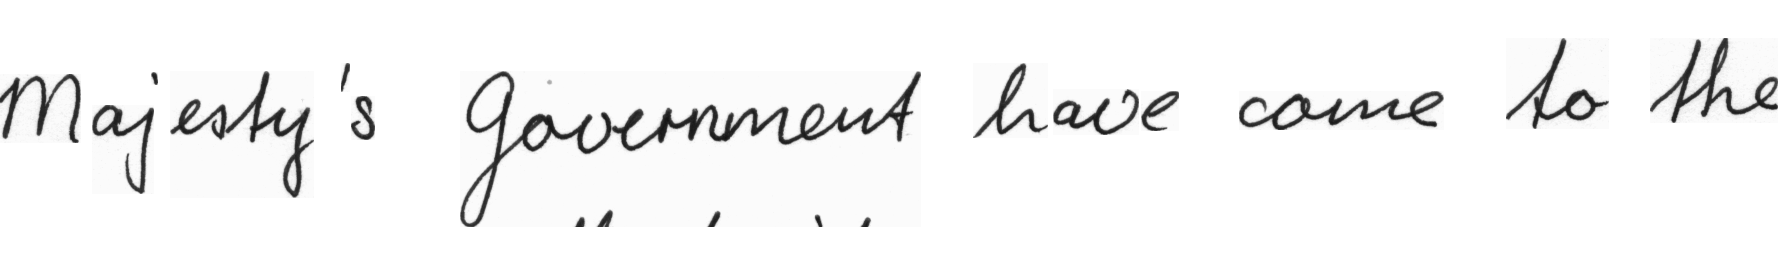 Majesty's Government have come to the